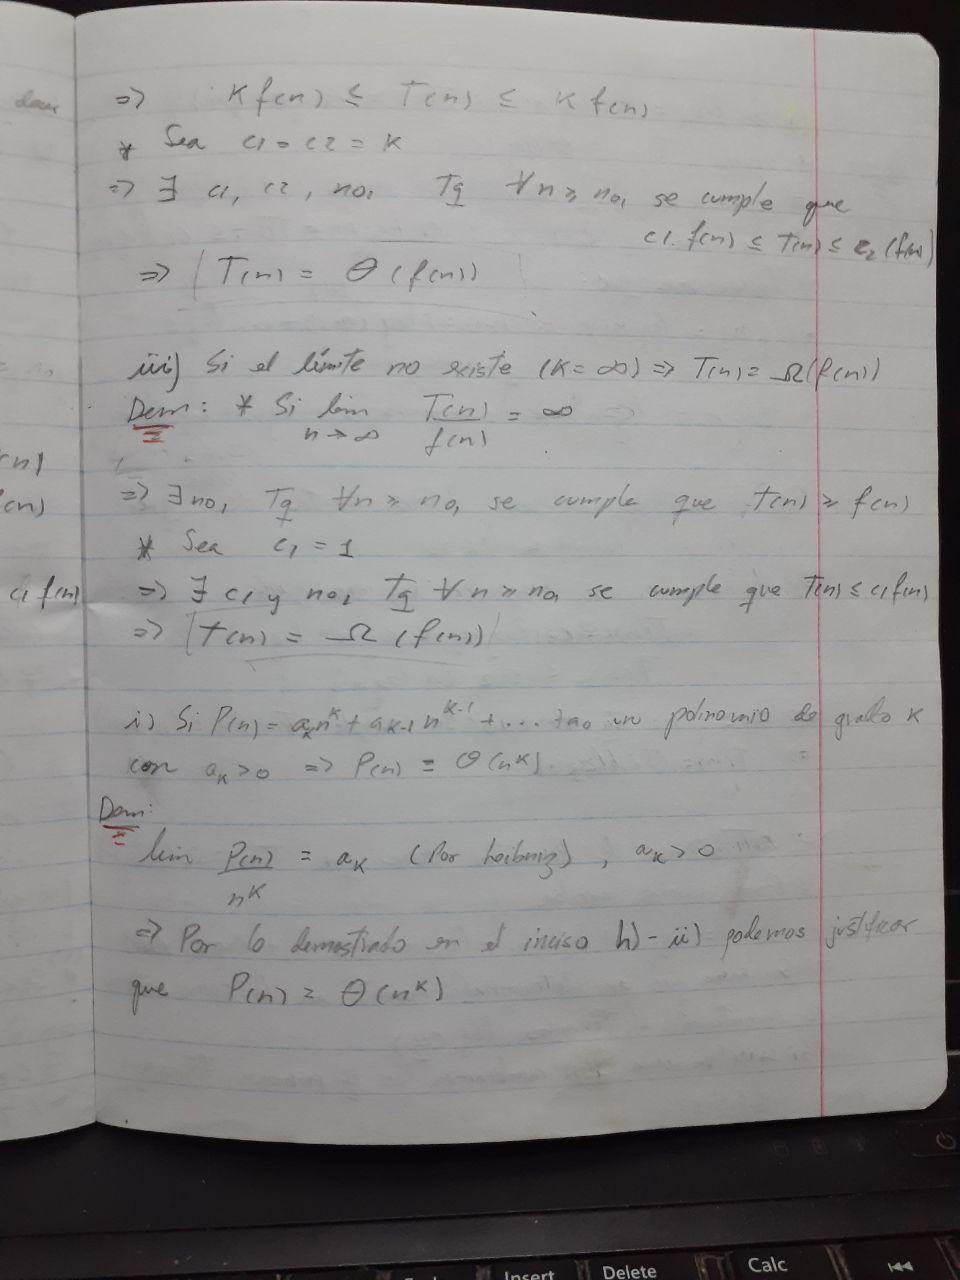 daux
=> K f(n) ≤ T(n) ≤ K f(n)
* Sea c1 = c2 = K
=> ∃ c1, c2, n0, Tq ∀n ≥ n0, se cumple que
c1. f(n) ≤ T(n) ≤ c2 (f(n)
=> T(n) = Θ (f(n))
iii) Si el límite no existe (K = ∞) => T(n) = Ω(f(n))
Dem: * Si lim T(n) = ∞
n -> ∞ f(n)
(n)
=> ∃ n0, Tq ∀n ≥ n0, se cumple que t(n) ≥ f(n)
(n)
* Sea c1 = 1
c1 f(n)
=> ∃ c1 y n0, Tq ∀n ≥ n0, se cumple que T(n) ≤ c1 f(n)
=> t(n) = Ω (f(n))
i) Si P(n) = aₖn^k + ak-1 n^k-1 + ... + a0 un polinomio de grado K
con aₖ > 0 => P(n) = Θ(n^k).
Dem:
lim P(n) = aₖ (Por Leibniz), aₖ > 0
n^K
=> Por lo demostrado en el inciso h) - ii) podemos justificar
que P(n) = Θ (n^k)
Insert
Delete
Calc